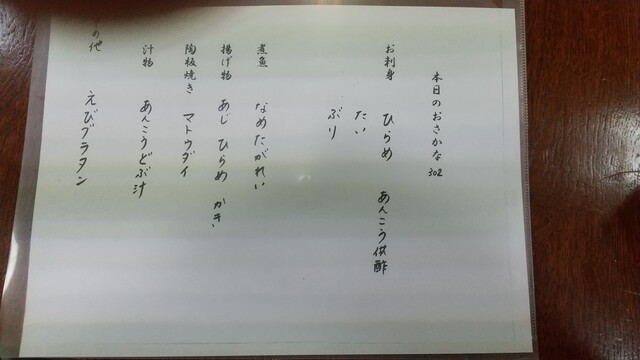 本日のおさかな 302
お刺身 ひらめ あんこう供酢
たい
ぶり
煮魚 なめたがれい
揚げ物 あじ ひらめ かき
陶板焼き マトウダイ
汁物 あんこうどぶ汁
の他 えびグラタン